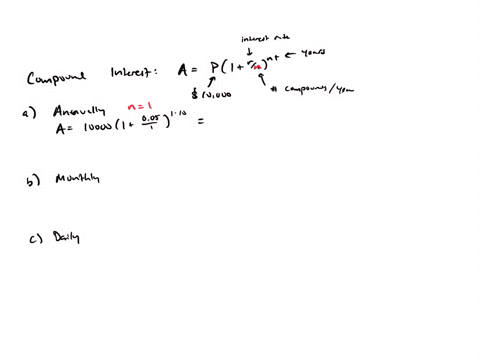 interest rate
Compound Interest: A = P(1 + r/n)^nt ← years
$10,000
# compounds/year
a) Annually n=1
A= 10000(1+ 0.05/1)^1·10 =
b) Monthly
c) Daily